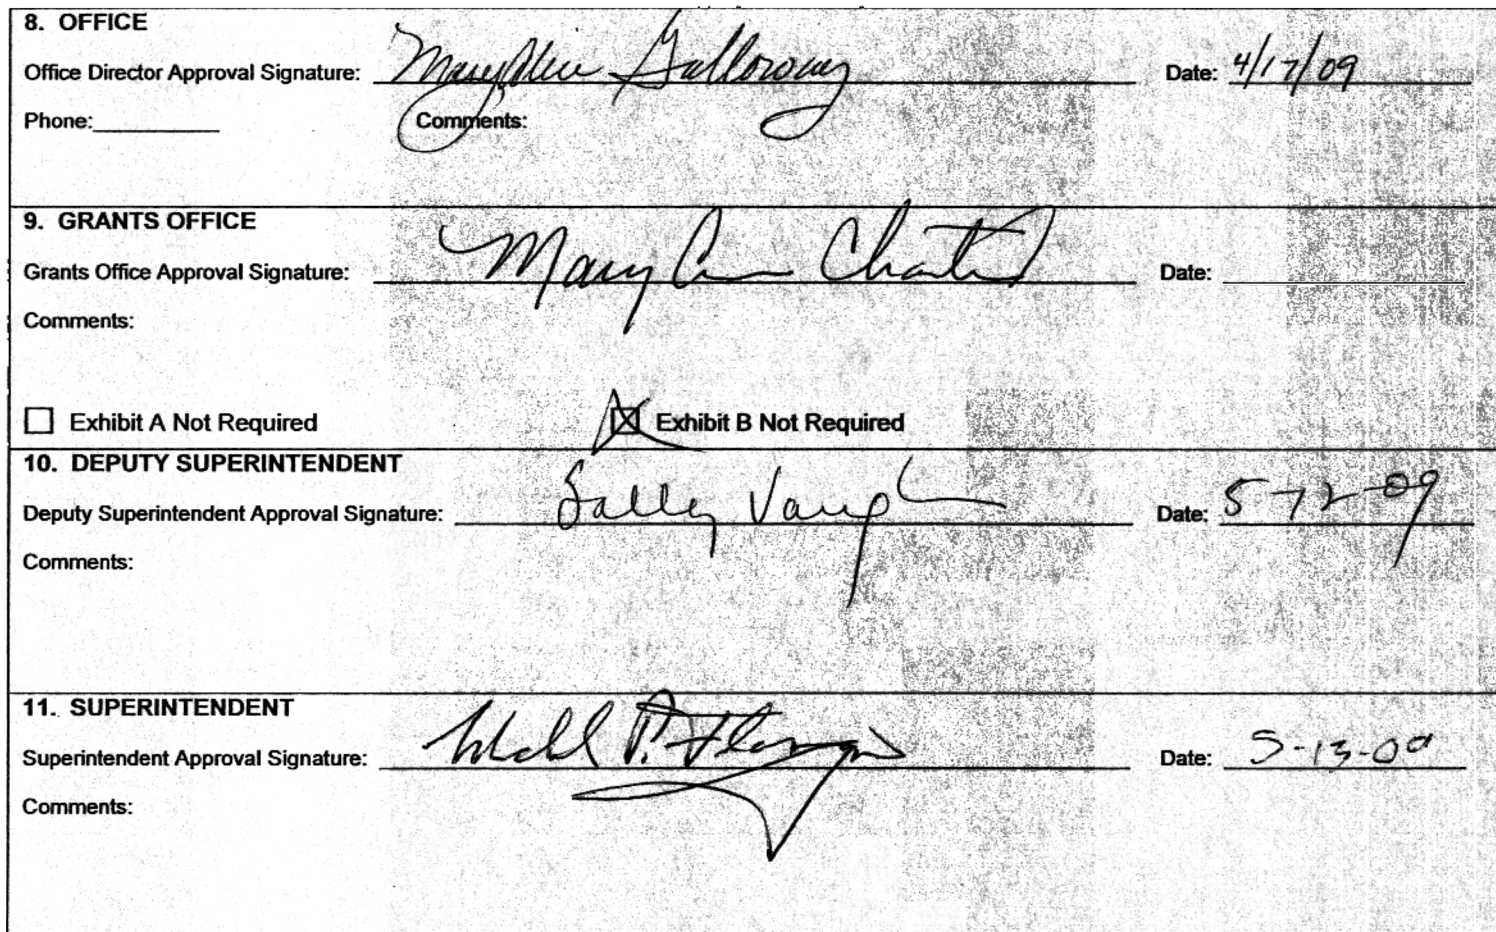 8. OFFICE
Office Director Approval Signature: Mary Alice Galloway Date: 4/17/09
Phone: Comments:
9. GRANTS OFFICE
Grants Office Approval Signature: Mary Date:
Comments:
Exhibit A Not Required Exhibit B Not Required
10. DEPUTY SUPERINTENDENT
Deputy Superintendent Approval Signature: Sally Vaughn Date: 5-12-09
Comments:
11. SUPERINTENDENT
Superintendent Approval Signature: Date: 5-13-09
Comments: